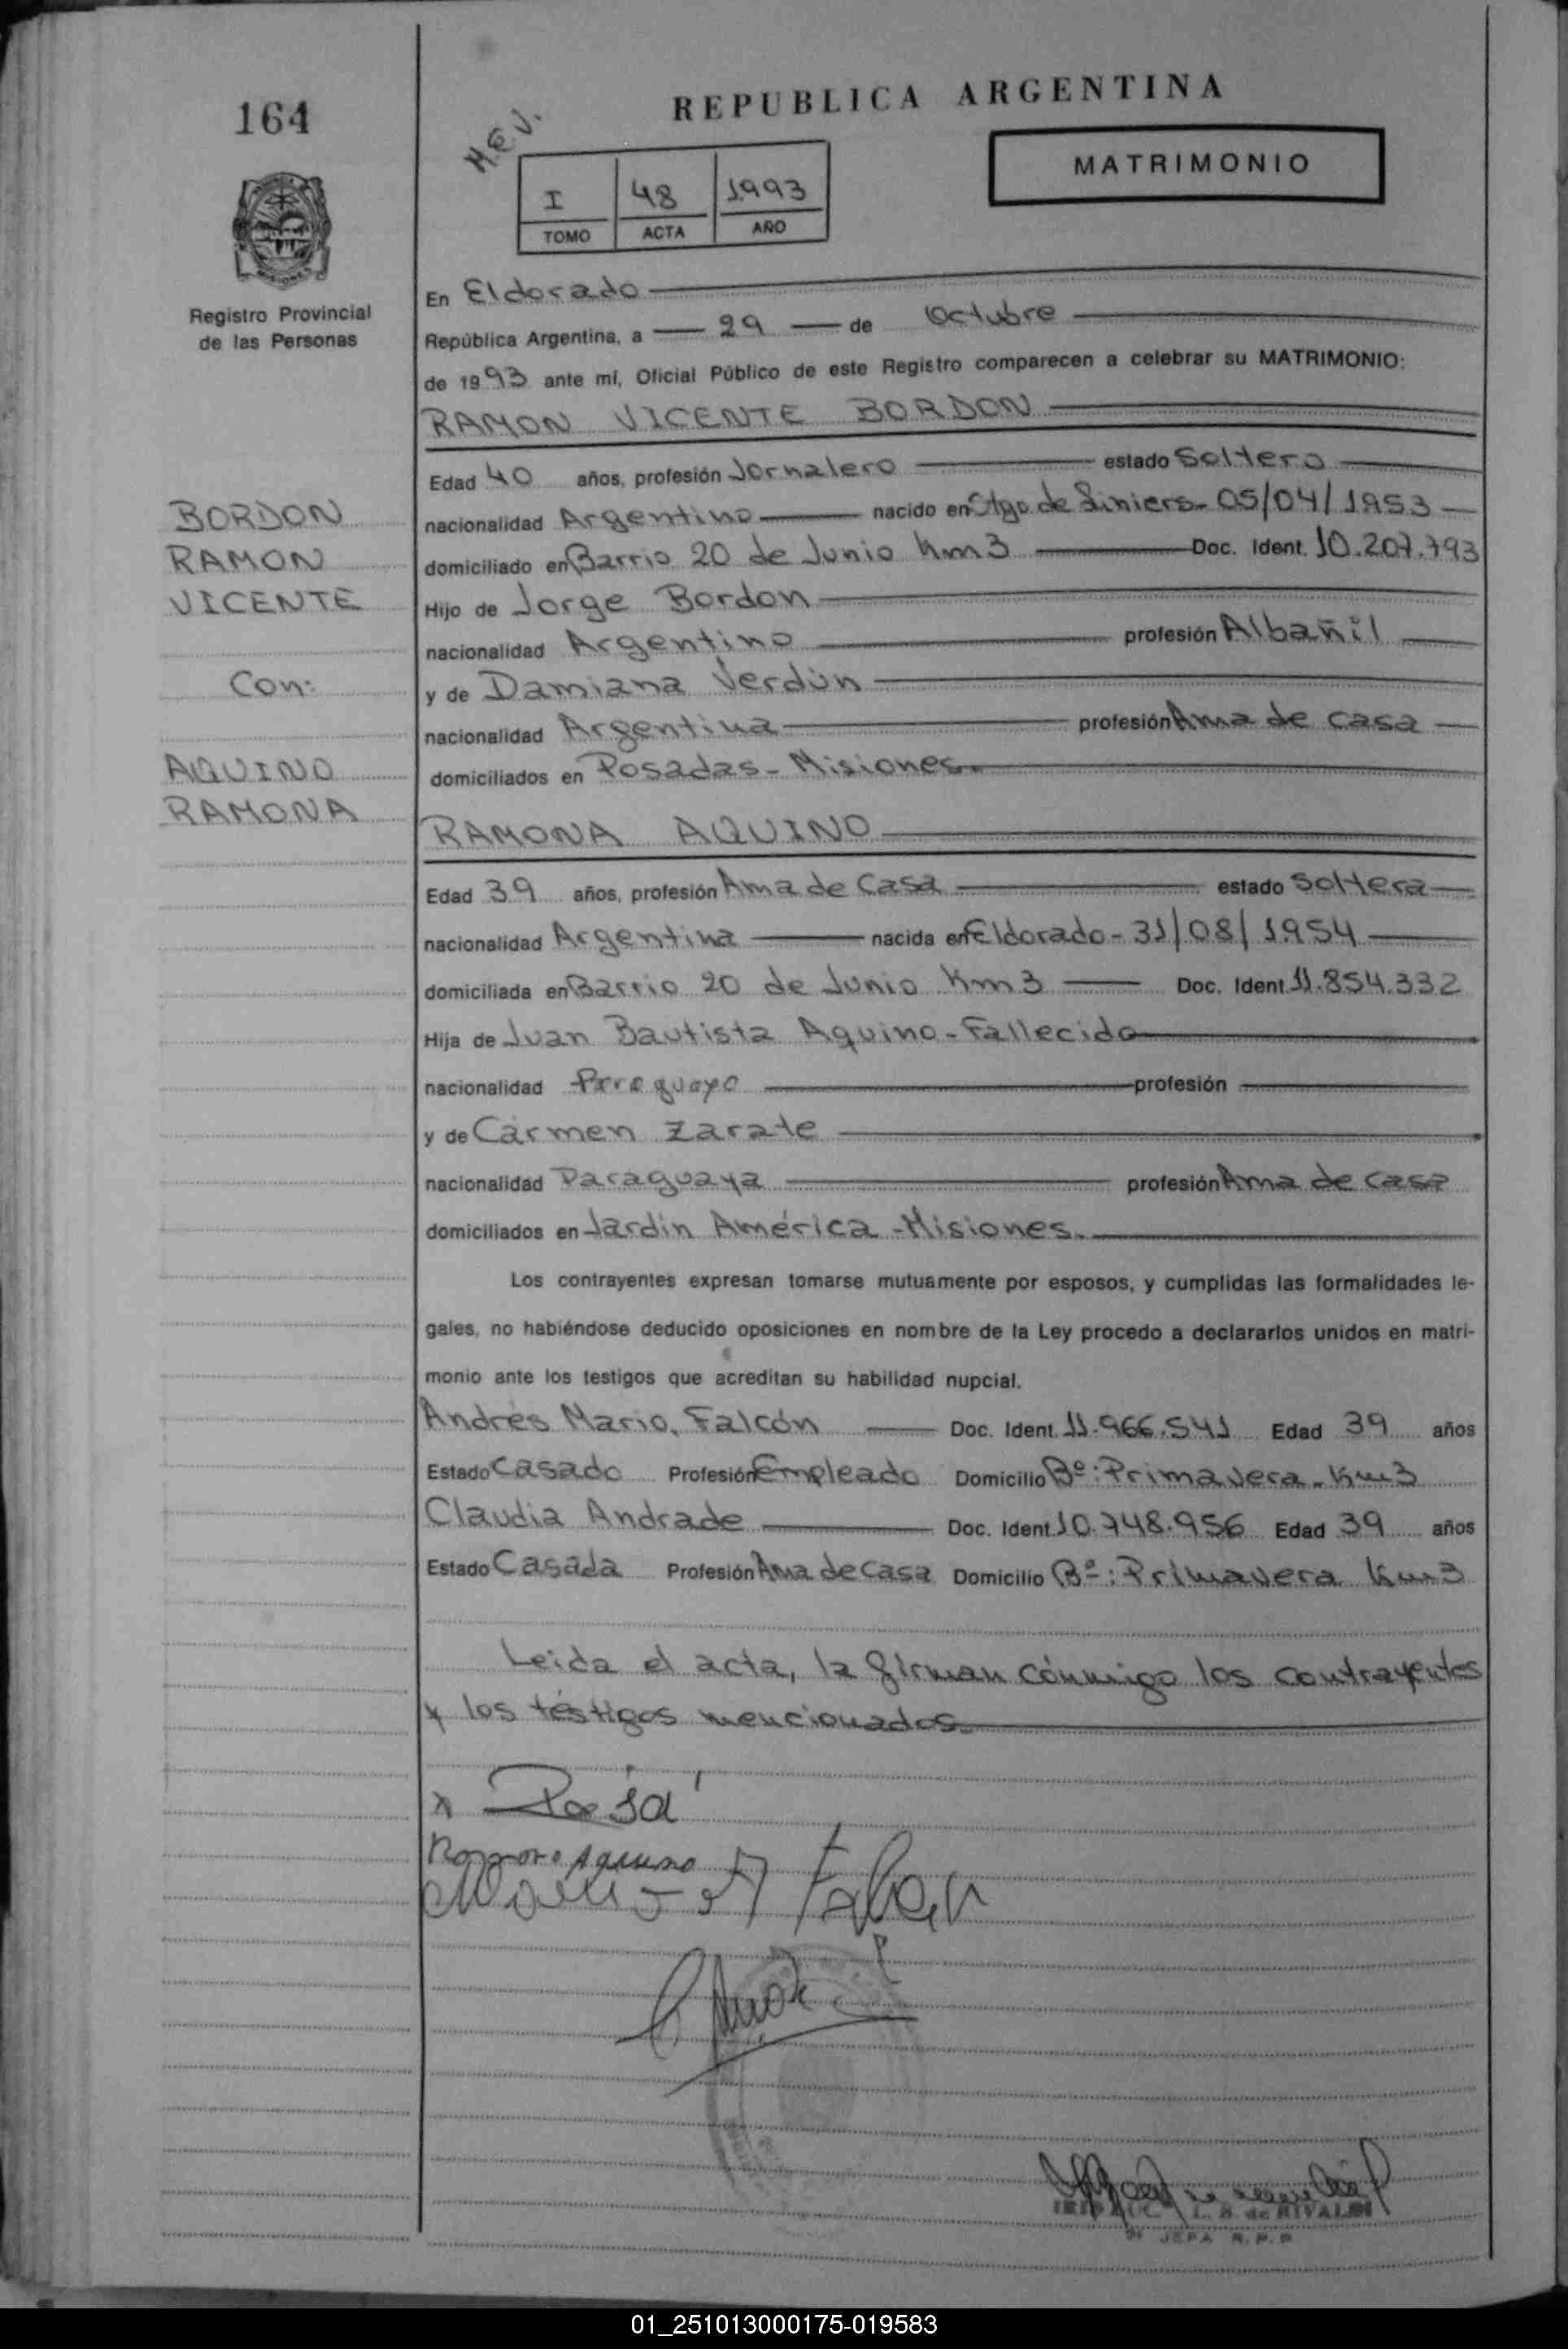 164
REPUBLICA ARGENTINA
M.E.J.
MATRIMONIO
I 48 1993
TOMO ACTA AÑO
Registro Provincial
de las Personas
En Eldorado
República Argentina, a 29 de Octubre
de 1993 ante mí, Oficial Público de este Registro comparecen a celebrar su MATRIMONIO:
RAMON VICENTE BORDON
Edad 40 años, profesión Jornalero estado Soltero
BORDON
RAMON
VICENTE
Con:
AQUINO
RAMONA
nacionalidad Argentino nacido en Stgo de Liniers- 05/04/1953
domiciliado en Barrio 20 de Junio Km3 Doc. Ident. 10.207.793
Hijo de Jorge Bordon
nacionalidad Argentino profesión Albañil
y de Damiana Verdún
nacionalidad Argentina profesión Ama de casa
domiciliados en Posadas- Misiones.
RAMONA AQUINO
Edad 39 años, profesión Ama de Casa estado Soltera
nacionalidad Argentina nacida en Eldorado- 31/08/1954
domiciliada en Barrio 20 de Junio Km3 Doc. Ident 11.854.332
Hija de Juan Bautista Aquino-Fallecido
nacionalidad Paraguayo profesión
y de Carmen Zarate
nacionalidad Paraguaya profesión Ama de Casa
domiciliados en Jardín América -Misiones.
Los contrayentes expresan tomarse mutuamente por esposos, y cumplidas las formalidades le-
gales, no habiéndose deducido oposiciones en nombre de la Ley procedo a declararlos unidos en matri-
monio ante los testigos que acreditan su habilidad nupcial.
Andrés Mario, Falcón Doc. Ident. 11.966.541 Edad 39 años
Estado Casado Profesión Empleado Domicilio Bº: Primavera- Km3
Claudia Andrade Doc. Ident 10.748.956 Edad 39 años
Estado Casada Profesión Ama de Casa Domicilio Bº: Primavera Km3
Leida el acta, la firman cónmigo los contrayentes
y los téstigos mencionados.
Ramona Aquino
L. B. de RIVALDI
JEFA R.P.P
01_251013000175-019583